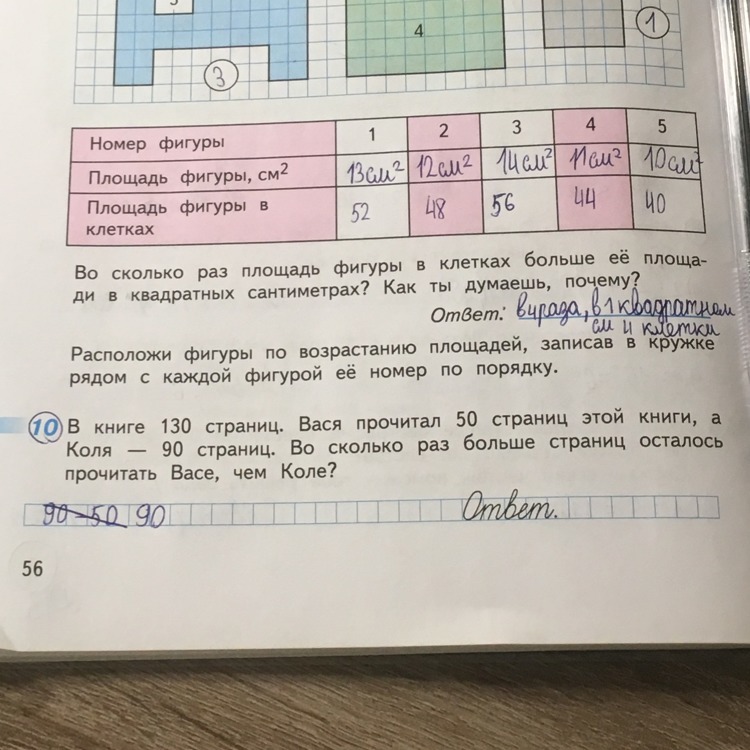 5
4
1
3
Номер фигуры 1 2 3 4 5
Площадь фигуры, см² 13см² 12см² 14см² 11см² 10см²
Площадь фигуры в клетках 52 48 56 44 40
Во сколько раз площадь фигуры в клетках больше её площа-
ди в квадратных сантиметрах? Как ты думаешь, почему?
Ответ: в 4 раза, в 1 квадратном
см 4 клетки
Расположи фигуры по возрастанию площадей, записав в кружке
рядом с каждой фигурой её номер по порядку.
10 В книге 130 страниц. Вася прочитал 50 страниц этой книги, а
Коля — 90 страниц. Во сколько раз больше страниц осталось
прочитать Васе, чем Коле?
90-50 90 Ответ.
56